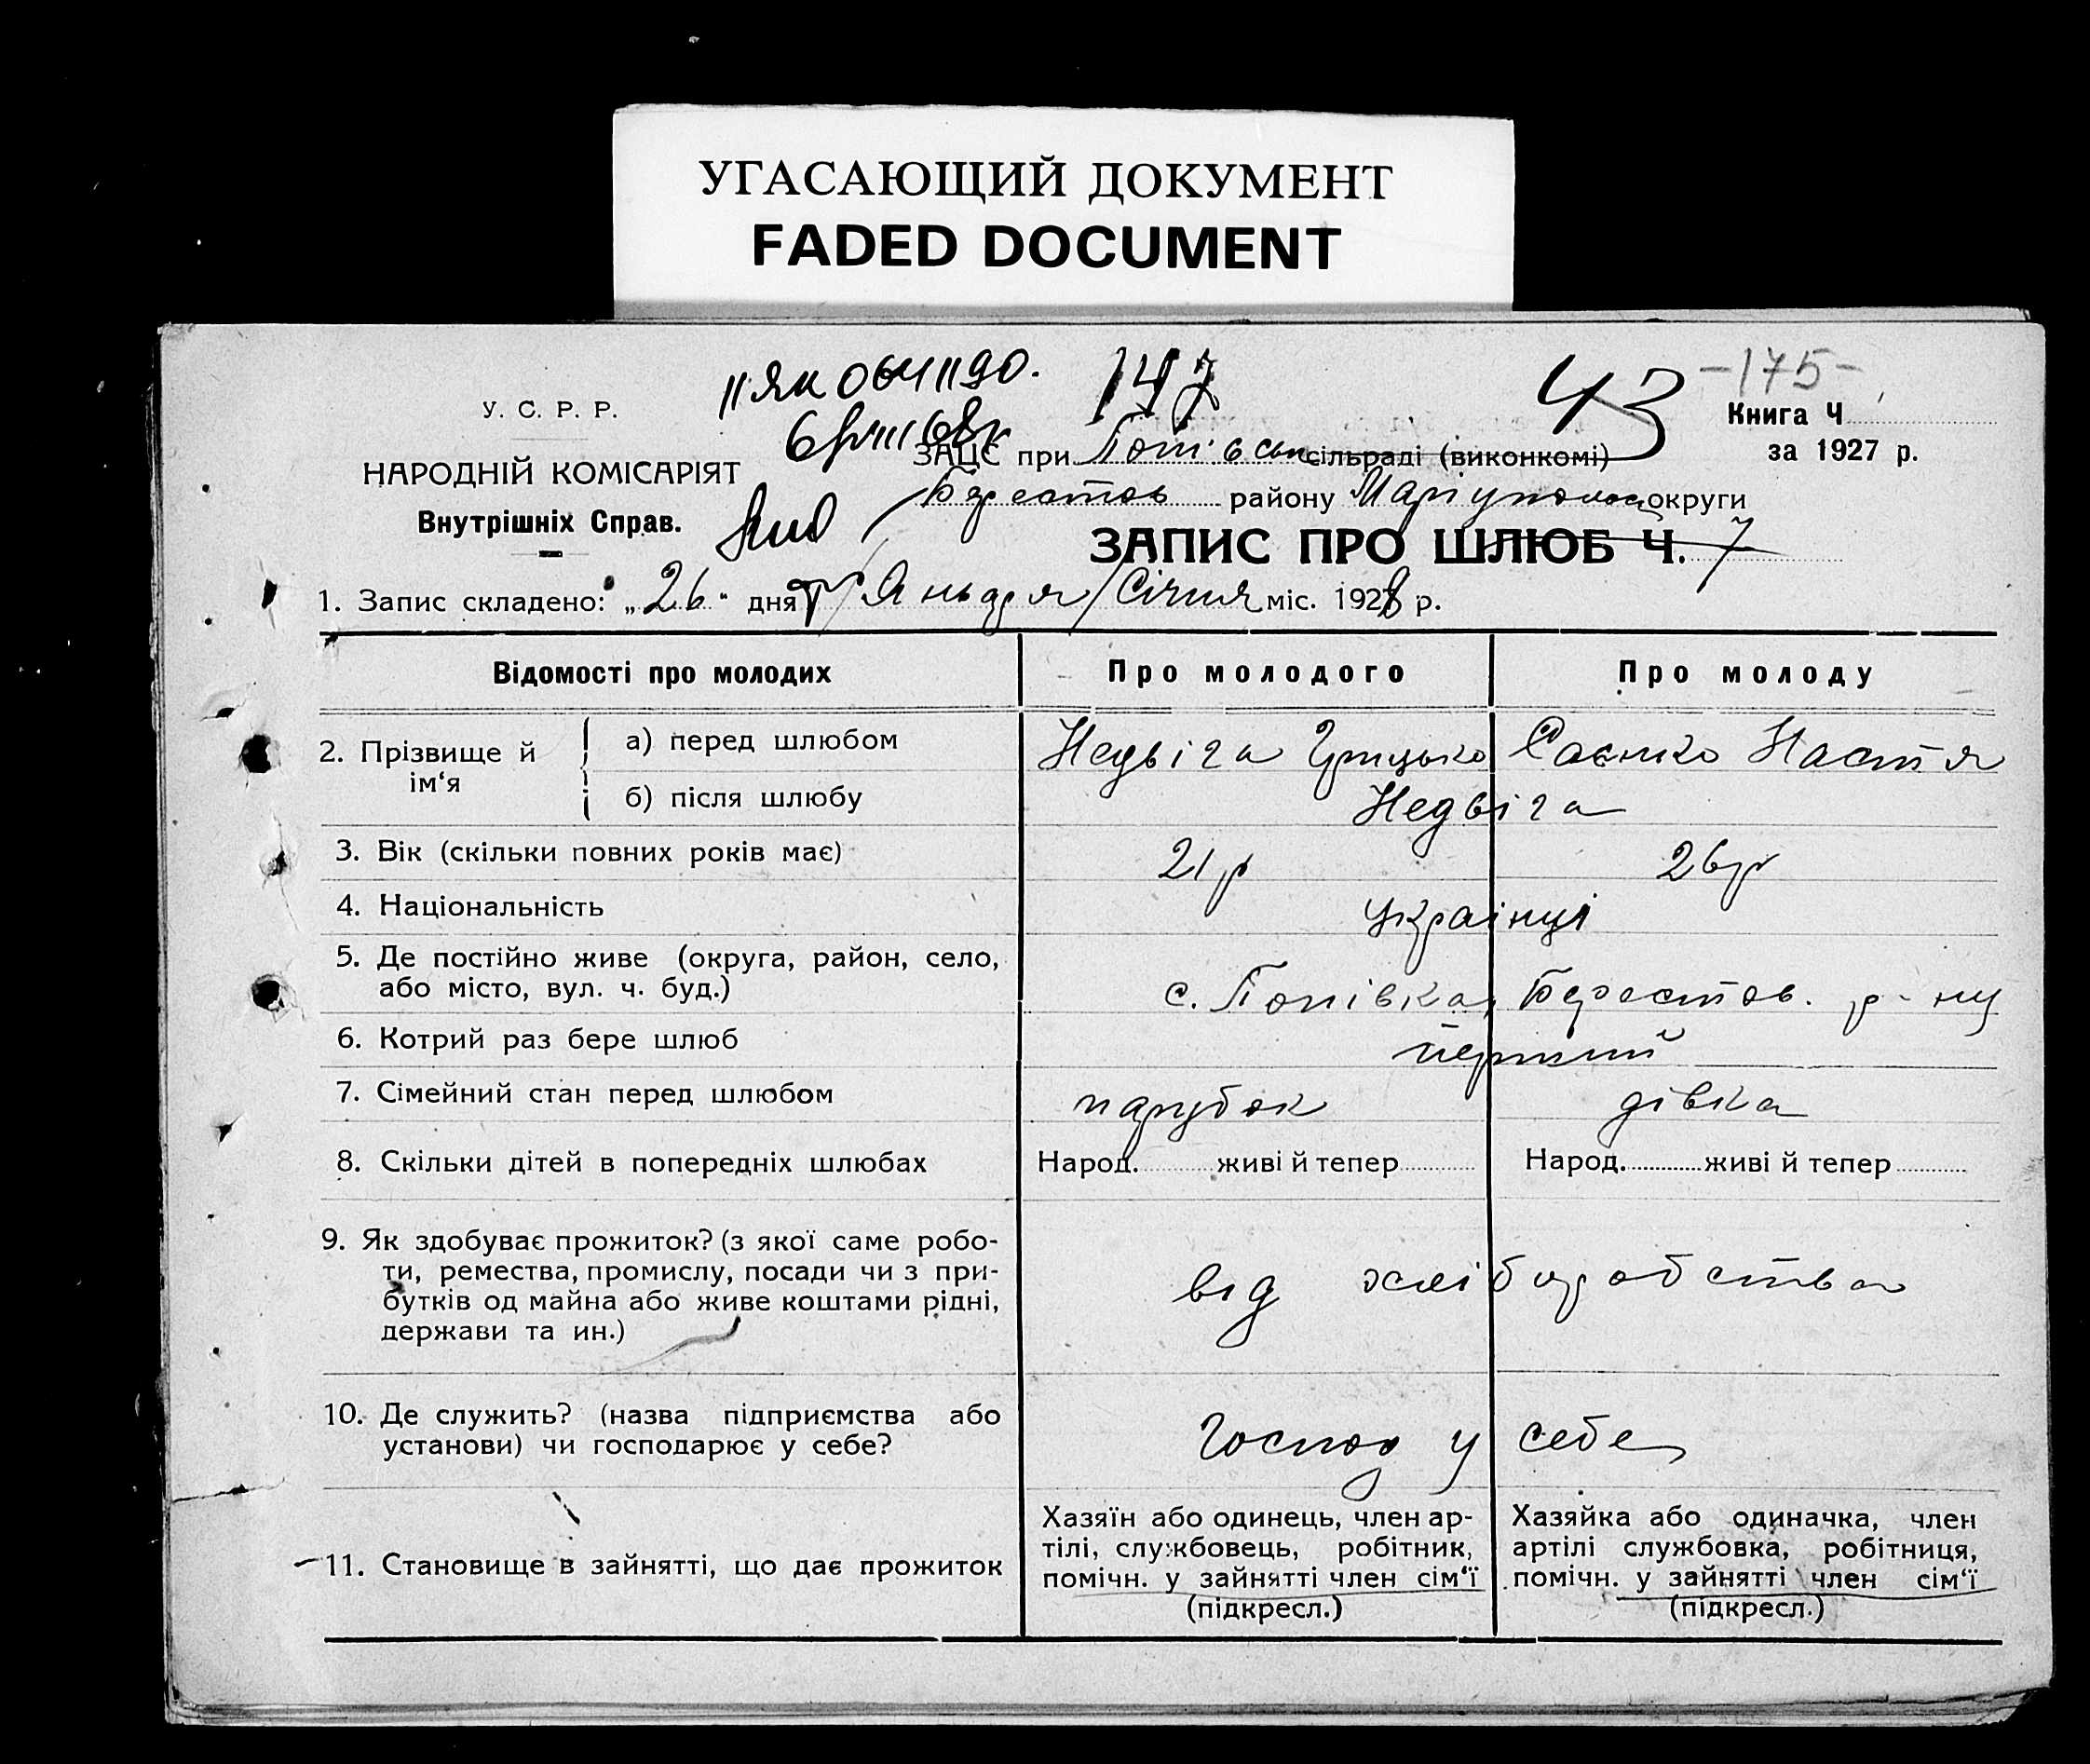 УГАСАЮЩИЙ ДОКУМЕНТ
FADED DOCUMENT
147
43
-175-
У. С. Р. Р.
Книга Ч
НАРОДНІЙ КОМІСАРІЯТ
Внутрішніх Справ.
ЗАЦС при Попівськ сільраді (виконкомі)
за 1927 р.
Берестов району Маріупольськ округи
ЗАПИС ПРО ШЛЮБ Ч. 7
1. Запис складено: „26" дня Января/Січня міс. 1928 р.
Відомості про молодих Про молодого Про молоду
2. Прізвище й ім‘я
а) перед шлюбом Недвіга Грицько Саєнко Настя
б) після шлюбу Недвіга
3. Вік (скільки повних років має) 21 р 26 р
4. Національність Українці
5. Де постійно живе (округа, район, село,
або місто, вул. ч. буд.) с. Попівка, Берестов. р-ну
6. Котрий раз бере шлюб перший
7. Сімейний стан перед шлюбом парубок дівка
8. Скільки дітей в попередніх шлюбах Народ. живі й тепер Народ. живі й тепер
9. Як здобуває прожиток? (з якої саме робо-
ти, ремества, промислу, посади чи з при-
бутків од майна або живе коштами рідні,
держави та ин.)
від хліборобства
10. Де служить? (назва підприємства або
установи) чи господарює у себе?
Господ у себе
11. Становище в зайнятті, що дає прожиток
Хазяїн або одинець, член ар-
тілі, службовець, робітник,
помічн. у зайнятті член сім‘ї
(підкресл.)
Хазяйка або одиначка, член
артілі службовка, робітниця,
помічн. у зайнятті член сім‘ї
(підкресл.)